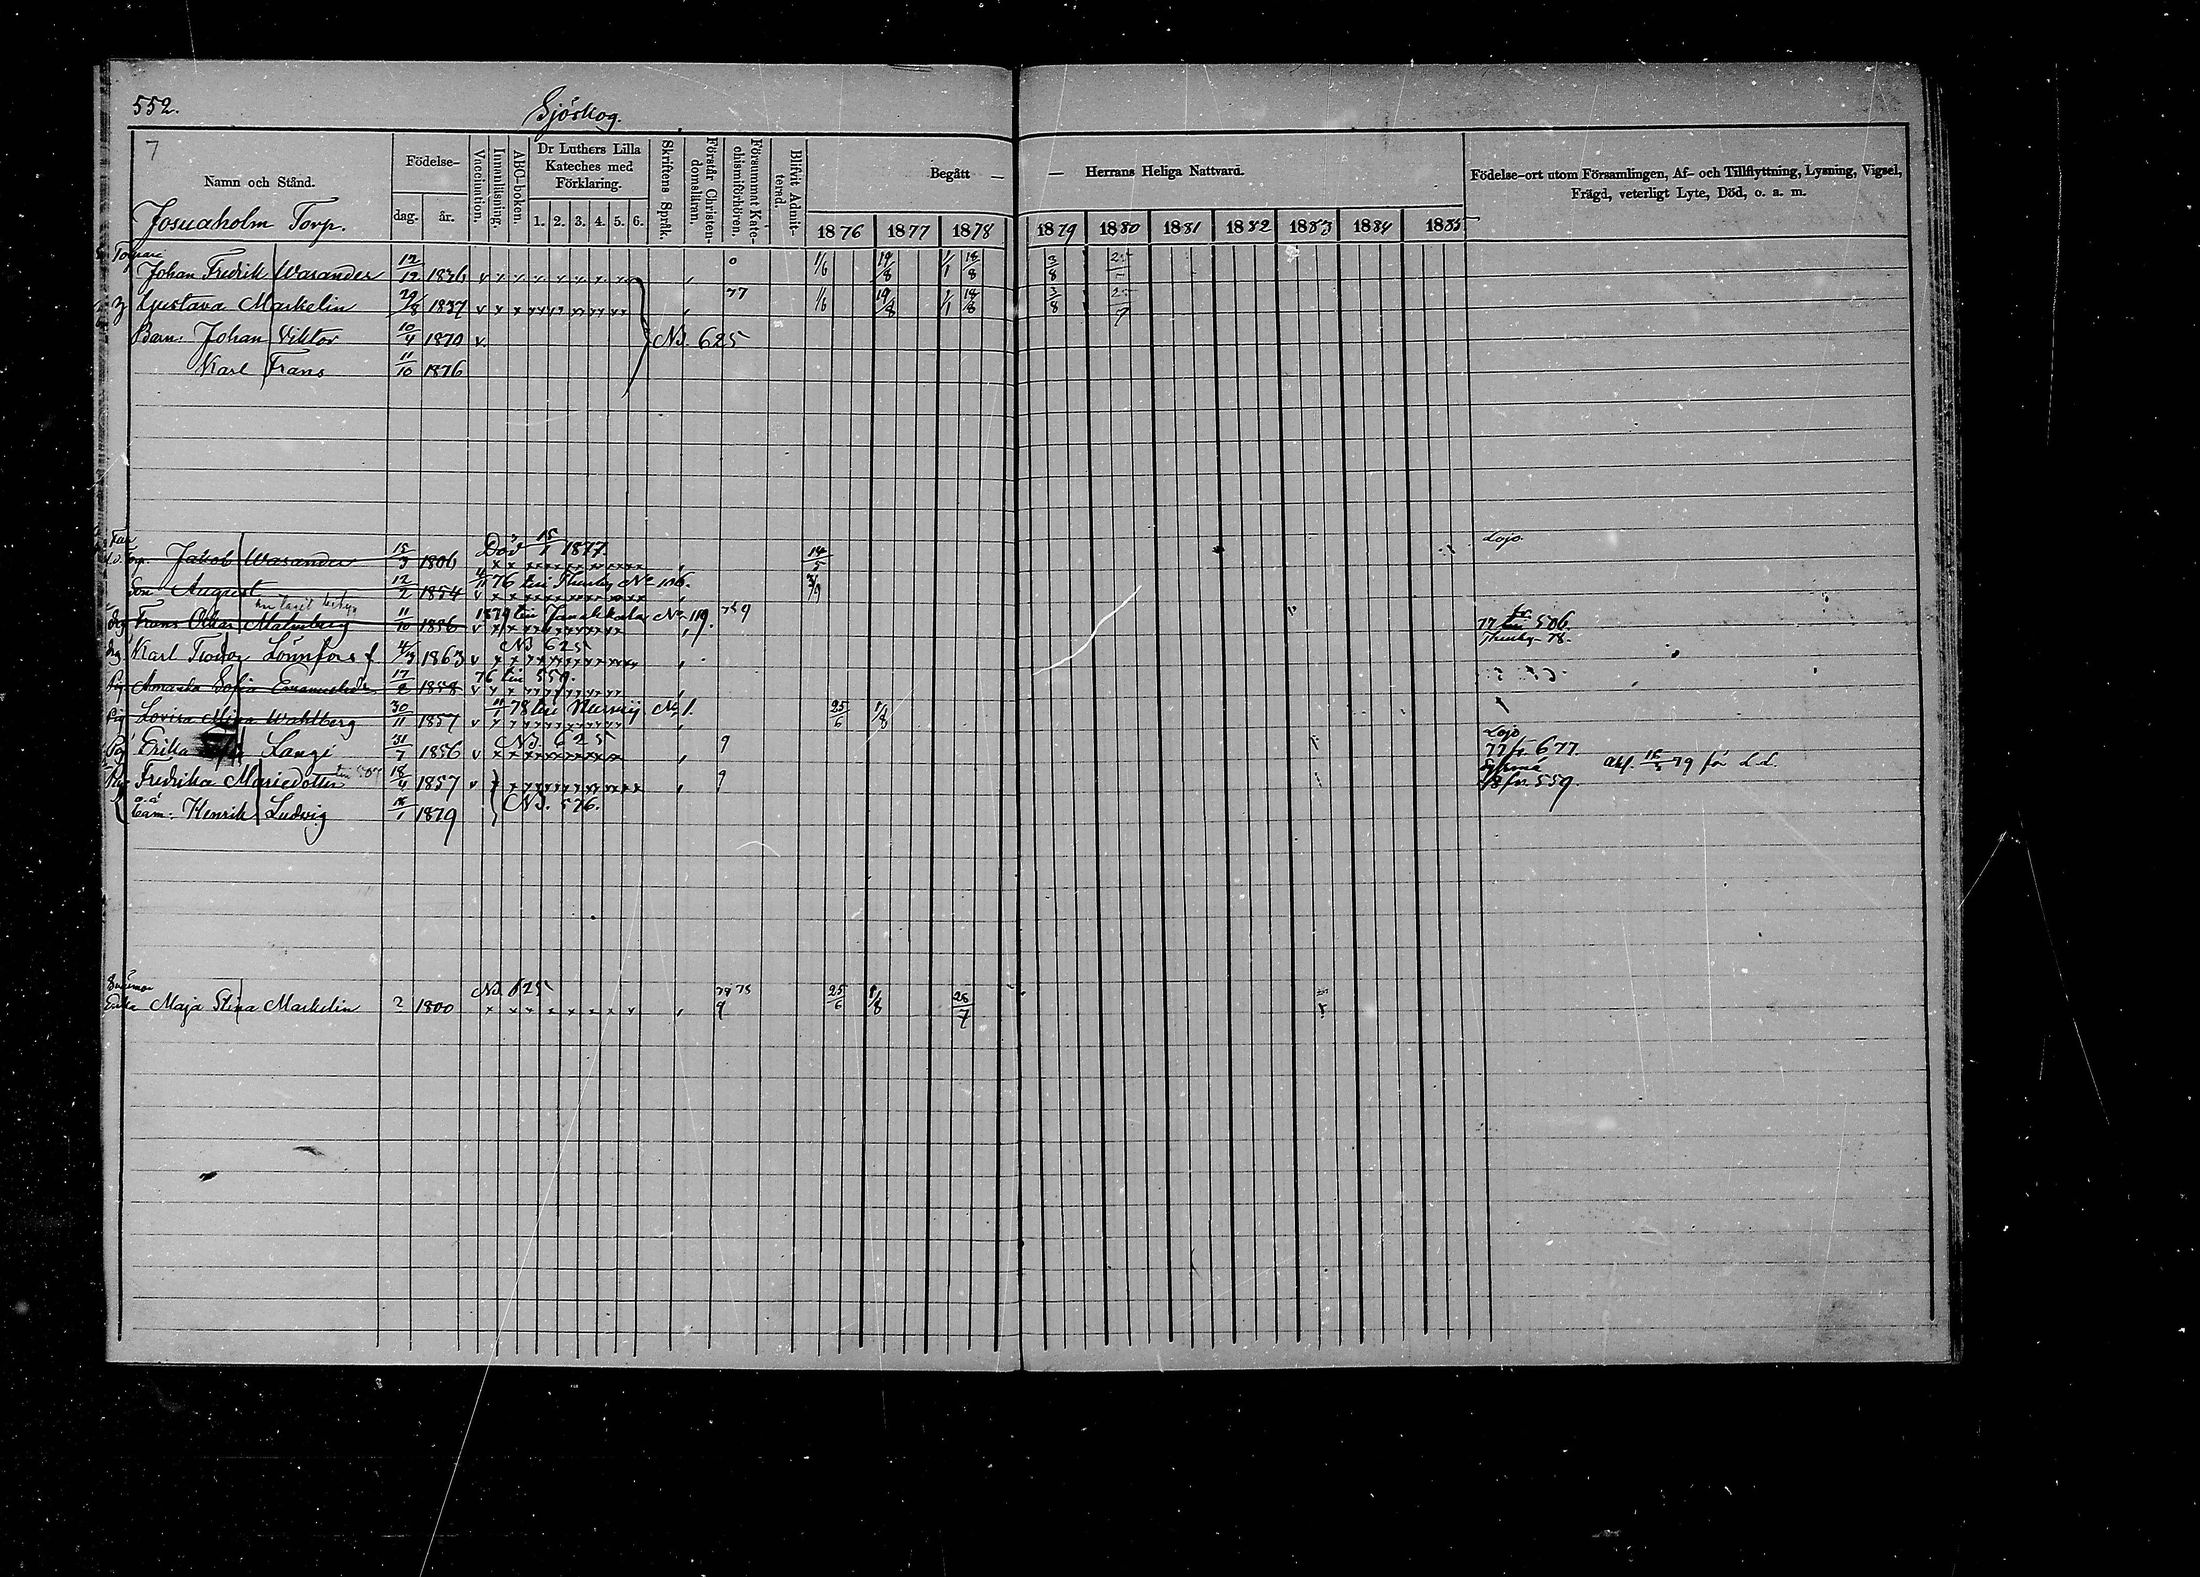 552.
Sjöskog.
7
Namn och Stånd.
Födelse-
dag.
år.
Vaccination.
Innanläsning.
ABC-boken.
Dr Luthers Lilla
Kateches med
Förklaring.
1. 2. 3. 4. 5. 6.
Skriftens Språk.
Förstår Christen-
domsläran.
Försummat Kate-
chismiförhören.
Blifvit Admit-
terad.
Begått —
— Herrans Heliga Nattvard.
1876 1877 1878 1879 1880 1881 1882 1883 1884 1885
Födelse-ort utom Församlingen, Af- och Tillflyttning, Lysning, Vigsel,
Frägd, veterligt Lyte, Död, o. a. m.
Josuaholm Torp.
Torpare
Johan Fredrik Wasander 12/12 1836 v 0 1/6 19/8 1/1 18/8 3/8 25
Gustava Markelin 29/8 1837 v 77 1/6 19/8 1/1 18/8 3/8 25/7
Barn: Johan Viktor 10/4 1870 v N3. 625
Karl Frans 11/10 1876
Jakob Wasander 15/3 1806 Död 15/1 1877. 14/5 Lojo.
Son August 12/2 1854 v 76 till Thusby No 106. 3/9
Frans Oskar Malmberg 11/10 1856 v 1879 till Janakkala No 119. 9 77 fr 506.
Thusby 78.
Karl Teodor Lönnfors 4/3 1863 v N3 625
Pig Amanda Sofia 17/2 1858 v 76 till 559.
Pig Lovisa Mina Wahlberg 30/11 1857 v 11/1 78 till Nurmij No 1. 25/6 1/8
Pig Erika Langi 31/7 1856 v N3. 625 9 Lojo
77 fr. 677
Fredrika Mariedotter till 507 18/4 1857 v 9 78 fr. 559. Akf. 79 för L.L.
barn: Henrik Ludvig 1879 N3. 576.
Enka Maja Stina Markelin ? 1800 N3. 625 9 25/6 1/8 28/7